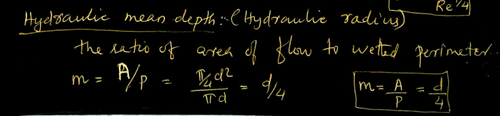 Re¼
Hydraulic mean depth:- (Hydraulic radius)
the ratio of area of flow to wetted perimeter.
m = A/P = π/4 d² / πd = d/4
m = A/P = d/4